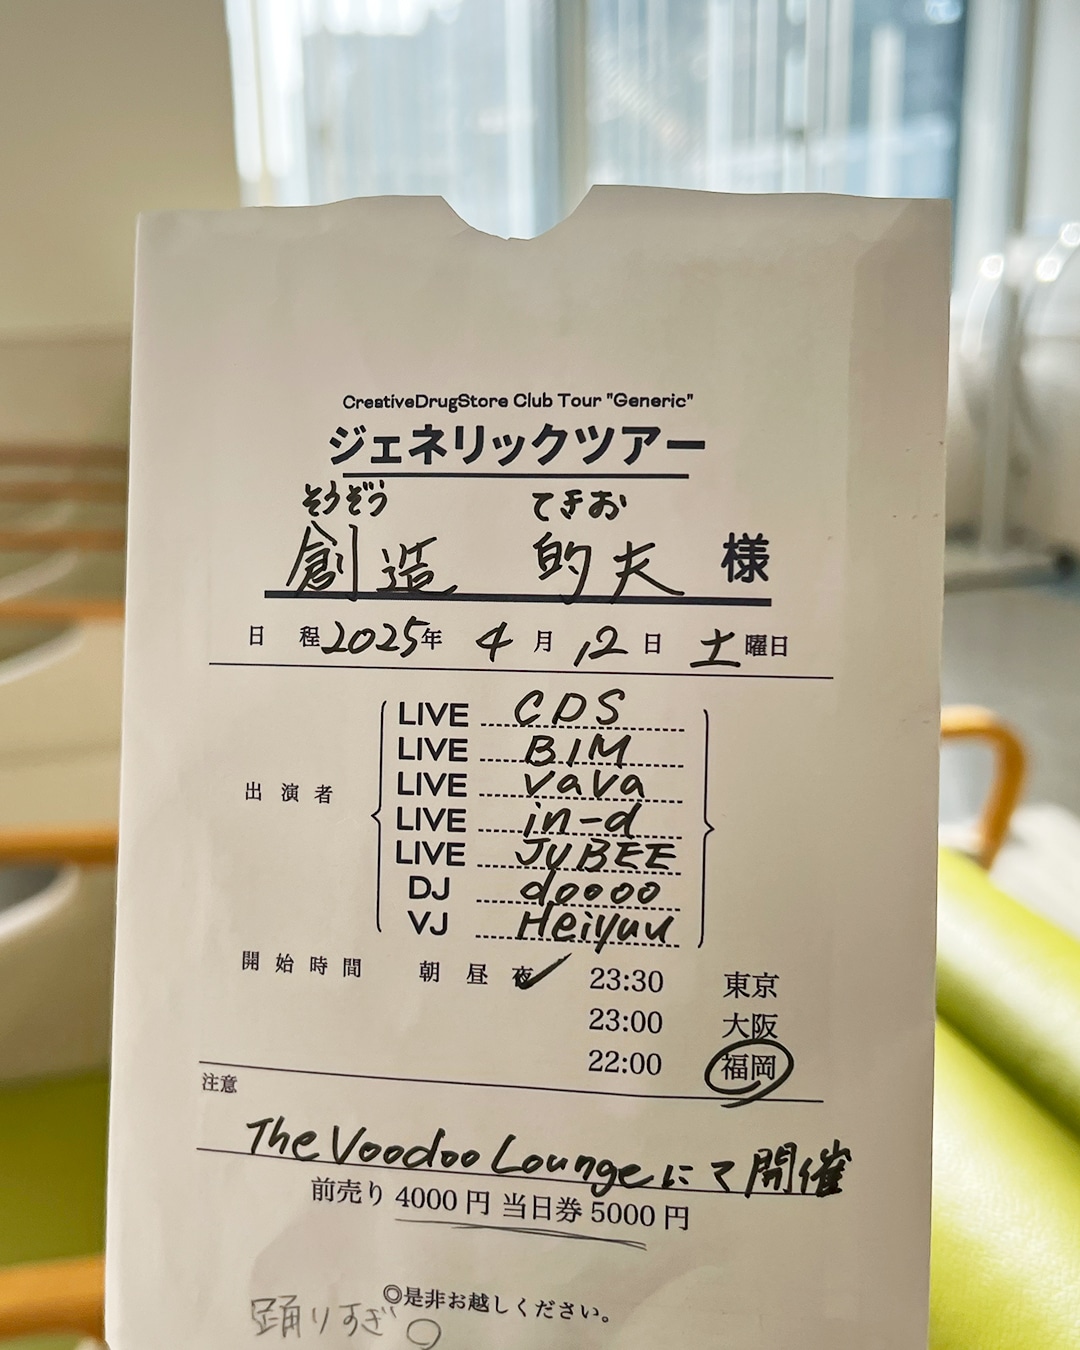 CreativeDrugStore Club Tour "Generic"
ジェネリックツアー
そうぞう てきお
創造 的夫 様
日 程 2025年 4月 12日 土曜日
出演者
LIVE CDS
LIVE BIM
LIVE VaVa
LIVE in-d
LIVE JUBEE
DJ doooo
VJ Heiyuu
開始時間 朝 昼 夜 23:30 東京
23:00 大阪
22:00 福岡
注意
The Voodoo Loungeにて開催
前売り 4000 円 当日券 5000 円
◎是非お越しください。
踊りすぎ